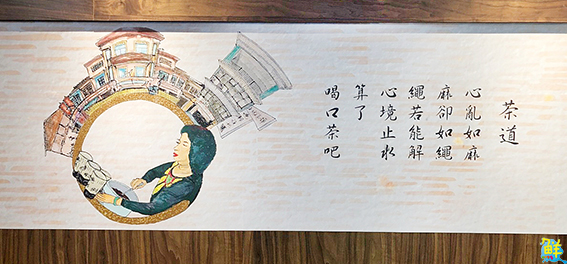 茶道
心亂如麻
麻卻如繩
繩若能解
心境止水
算了
喝口茶吧
鮮